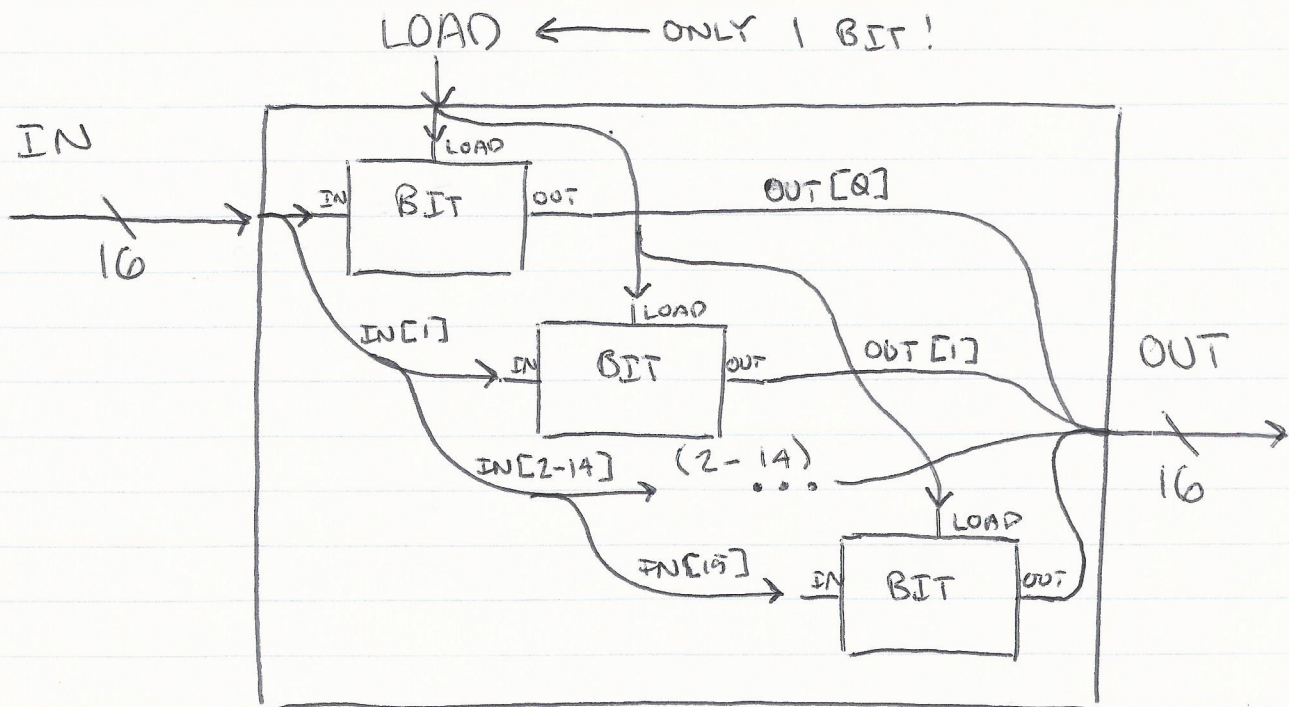 LOAD ← ONLY 1 BIT!
IN
16
LOAD
IN BIT OUT
OUT[0]
LOAD
IN[1]
IN BIT OUT
OUT[1]
OUT
16
IN[2-14]
(2-14)
...
LOAD
IN[15]
IN BIT OUT